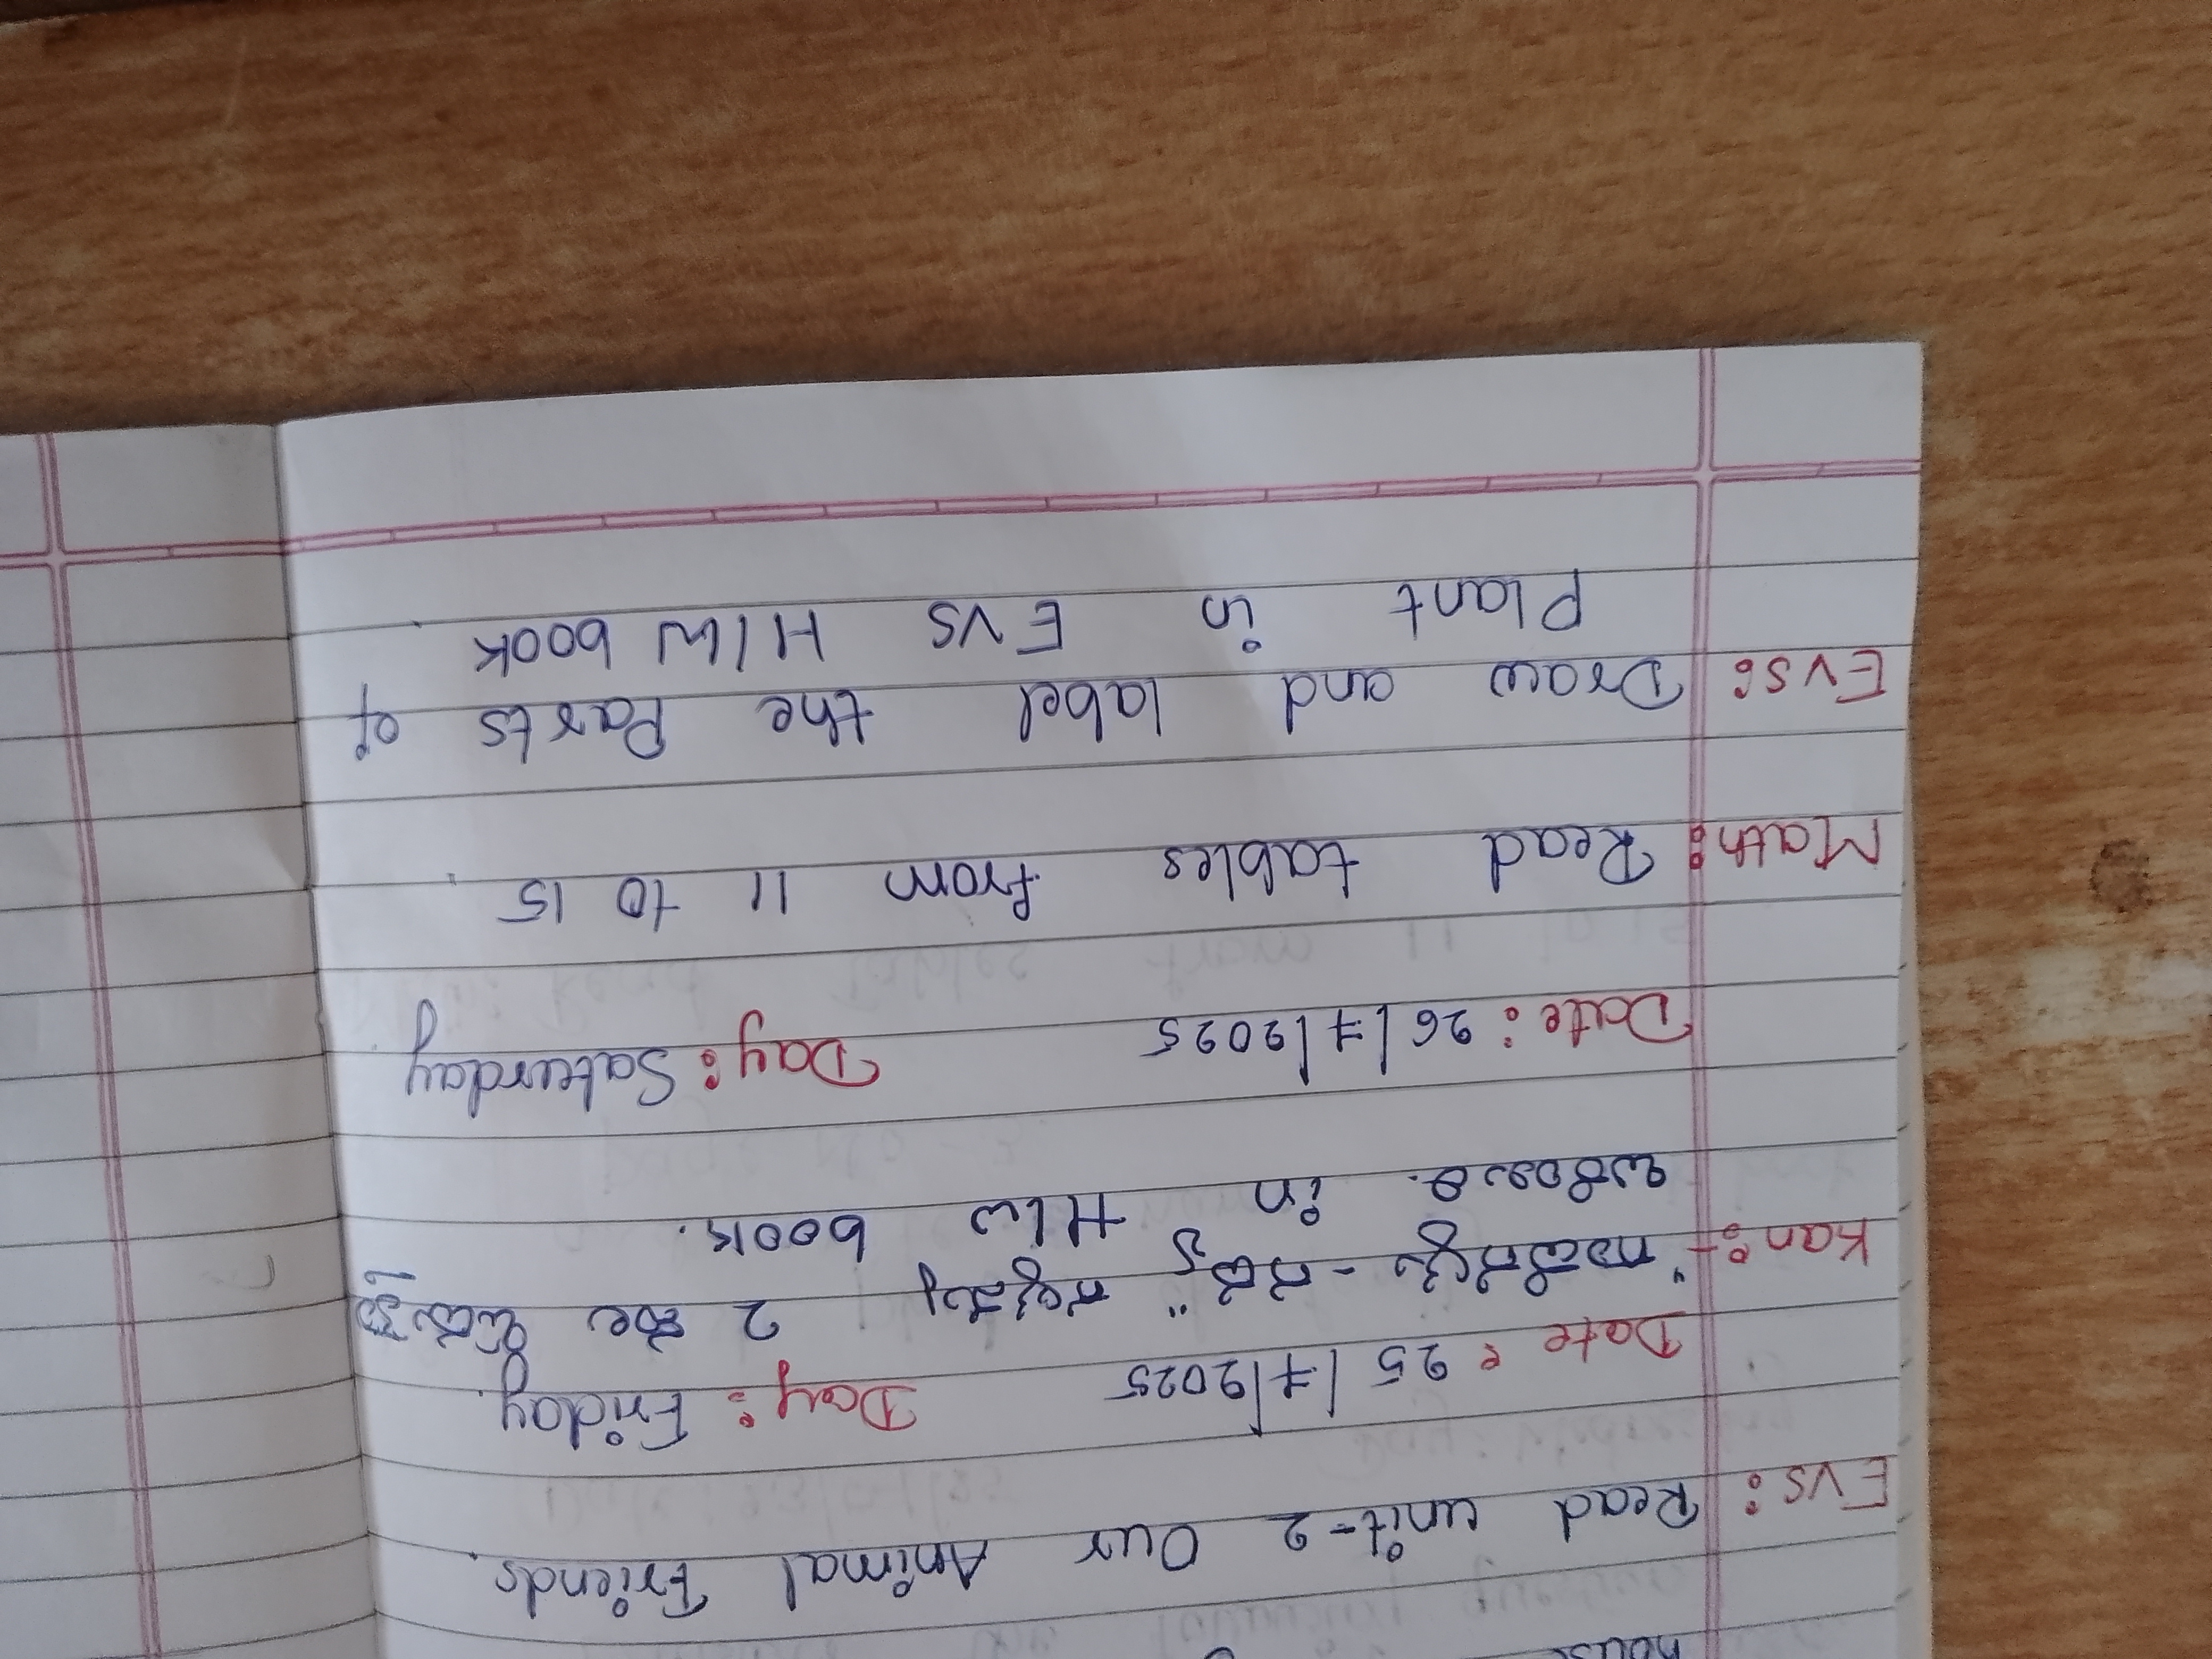 house
EVS: Read unit-2 Our Animal Friends.
Date: 25/7/2025 Day: Friday.
Kan:- "ಗಾದೆಗಳು - ಗದ್ಯ" ಗಳನ್ನು 2 ಸಲ ಓದುತ್ತಾ
ಬರೆಯಿರಿ. in H/W book.
Date: 26/7/2025 Day: Saturday
Math: Read tables from 11 to 15.
EVS: Draw and label the Parts of
Plant in EVS H/W book.